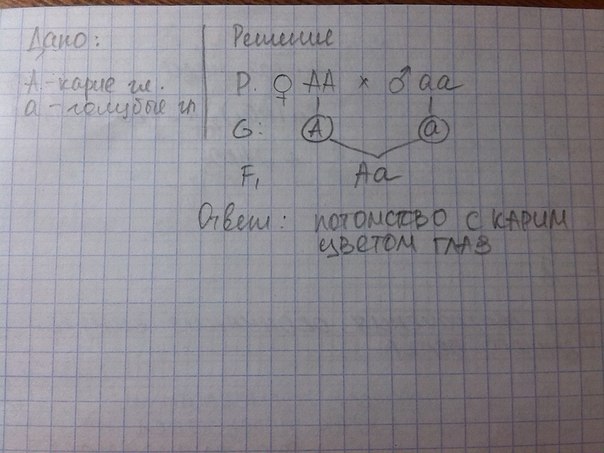 Дано:
А - карие гл.
а - голубые гл
Решение
P. ♀ АА × ♂ аа
G: А а
F₁ Аа
Ответ: потомство с карим
цветом глаз